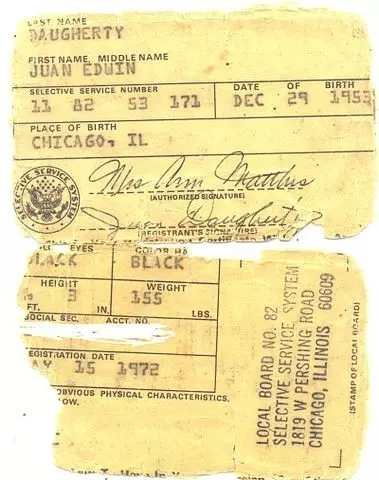 LAST NAME
DAUGHERTY
FIRST NAME, MIDDLE NAME
JUAN EDWIN
SELECTIVE SERVICE NUMBER
DATE OF BIRTH
11 82 53 171
DEC 29 1953
PLACE OF BIRTH
CHICAGO, IL
SELECTIVE SERVICE SYSTEM
Mrs Ann Matthis
(AUTHORIZED SIGNATURE)
Juan Daugherty
(REGISTRANT'S SIGNATURE)
EYES
COLOR
LACK
BLACK
HEIGHT
WEIGHT
3
155
FT.
IN.
LBS.
SOCIAL SEC. ACCT. NO.
EGISTRATION DATE
AY 15 1972
OBVIOUS PHYSICAL CHARACTERISTICS.
OW.
LOCAL BOARD NO. 82
SELECTIVE SERVICE SYSTEM
1819 W PERSHING ROAD
CHICAGO, ILLINOIS 60609
(STAMP OF LOCAL BOARD)